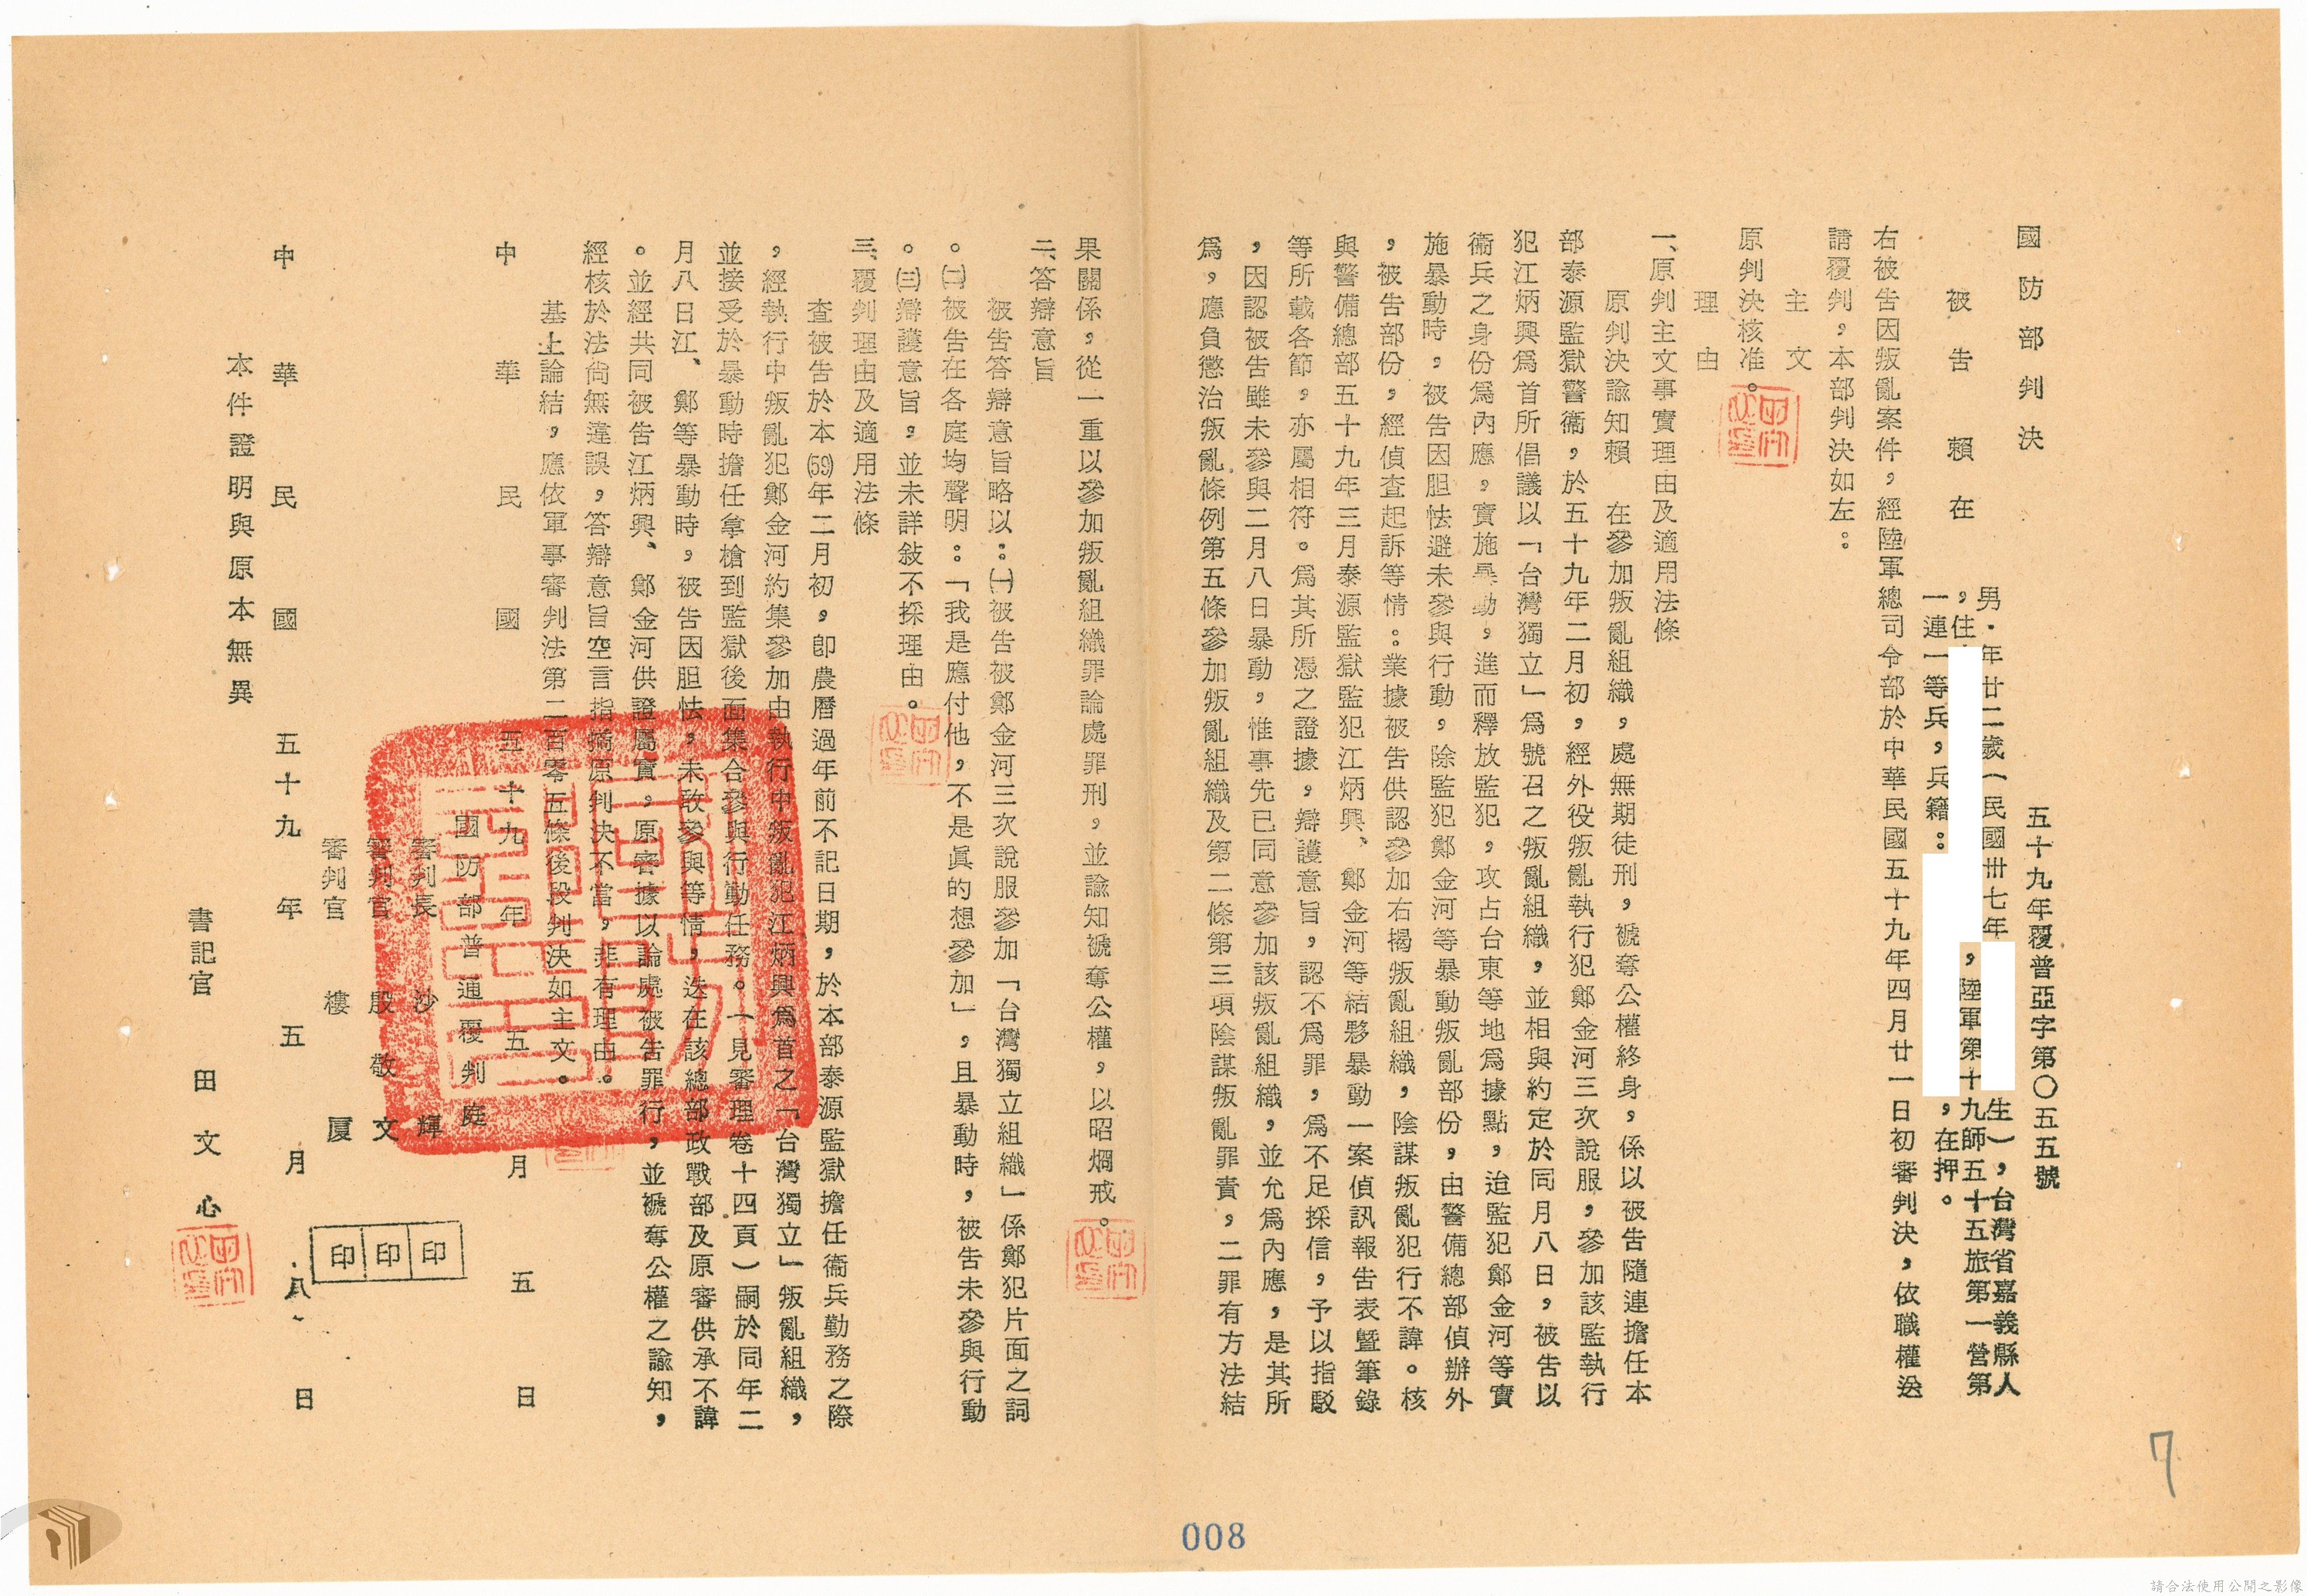 國防部判決
五十九年覆普亞字第〇五五號
被告賴在
男・年廿二歲(民國卅七年
生),台灣省嘉義縣人
,住
,陸軍第十九師五十五旅第一營第
一連一等兵,兵籍:
,在押。
右被告因叛亂案件,經陸軍總司令部於中華民國五十九年四月廿一日初審判決,依職權送
請覆判,本部判決如左:
主文
原判決核准。
理由
一、原判主文事實理由及適用法條
原判決諭知賴 在參加叛亂組織,處無期徒刑,褫奪公權終身,係以被告隨連擔任本
部泰源監獄警衞,於五十九年二月初,經外役叛亂執行犯鄭金河三次說服,參加該監執行
犯江炳興爲首所倡議以「台灣獨立」爲號召之叛亂組織,並相與約定於同月八日,被告以
衞兵之身份爲內應,實施暴動,進而釋放監犯,攻占台東等地爲據點,迨監犯鄭金河等實
施暴動時,被告因胆怯避未參與行動,除監犯鄭金河等暴動叛亂部份,由警備總部偵辦外
,被告部份,經偵查起訴等情:業據被告供認參加右揭叛亂組織,陰謀叛亂犯行不諱。核
與警備總部五十九年三月泰源監獄監犯江炳興、鄭金河等結夥暴動一案偵訊報告表暨筆錄
等所載各節,亦屬相符。爲其所憑之證據,辯護意旨,認不爲罪,爲不足採信,予以指駁
,因認被告雖未參與二月八日暴動,惟事先已同意參加該叛亂組織,並允爲內應,是其所
爲,應負懲治叛亂條例第五條參加叛亂組織及第二條第三項陰謀叛亂罪責,二罪有方法結
果關係,從一重以參加叛亂組織罪論處罪刑,並諭知褫奪公權,以昭烱戒。
二、答辯意旨
被告答辯意旨略以:㈠被告被鄭金河三次說服參加「台灣獨立組織」係鄭犯片面之詞
。㈡被告在各庭均聲明:「我是應付他,不是眞的想參加」,且暴動時,被告未參與行動
。㈢辯護意旨,並未詳敍不採理由。
三、覆判理由及適用法條
查被告於本(59)年二月初,卽農曆過年前不記日期,於本部泰源監獄擔任衞兵勤務之際
,經執行中叛亂犯鄭金河約集參加由執行中叛亂犯江炳興爲首之「台灣獨立」叛亂組織,
並接受於暴動時擔任拿槍到監獄後面集合參與行動任務。(見審理卷十四頁)嗣於同年二
月八日江、鄭等暴動時,被告因胆怯,未敢參與等情,迭在該總部政戰部及原審供承不諱
。並經共同被告江炳興、鄭金河供證屬實,原審據以論處被告罪行,並褫奪公權之諭知,
經核於法尙無違誤,答辯意旨空言指摘原判決不當,非有理由。
基上論結,應依軍事審判法第二百零五條後段判決如主文。
中華民國五十九年五月五日
國防部普通覆判庭
審判長 沙 輝
審判官 殷敬文
審判官 樓 厦
印印印
中華民國五十九年五月八日
本件證明與原本無異
書記官 田文心
7
008
請合法使用公開之影像